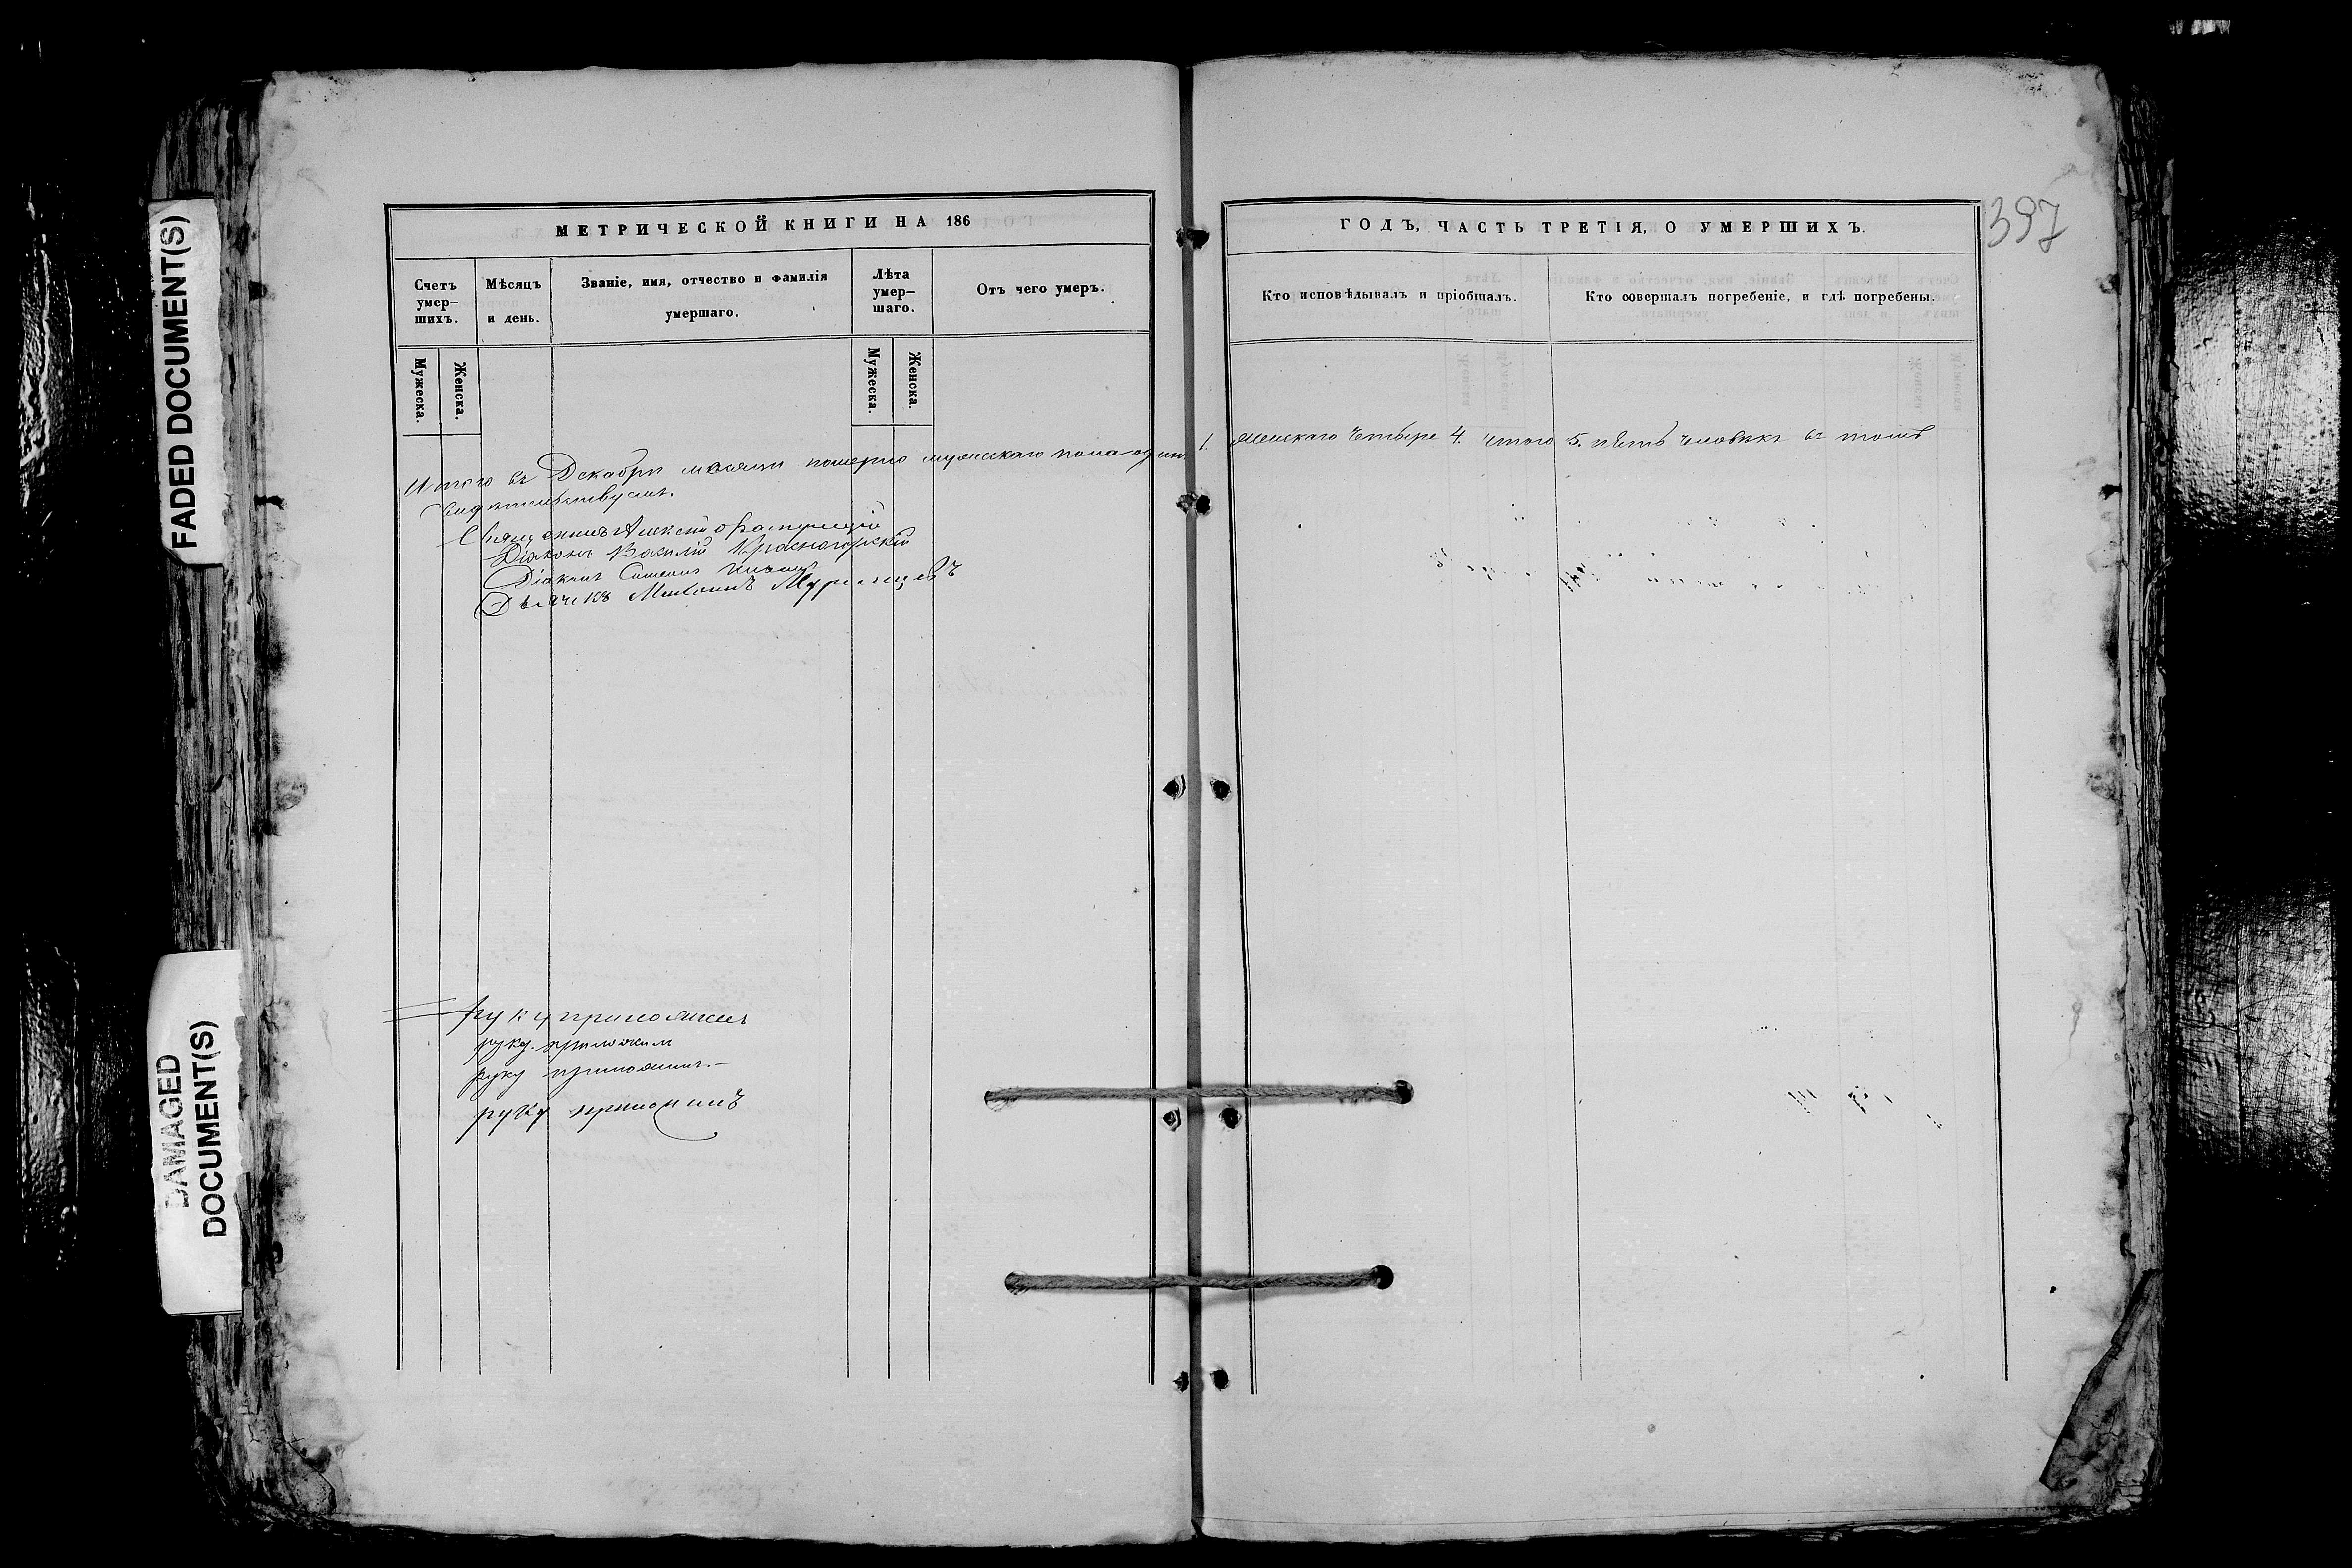 FADED DOCUMENT(S)
DAMAGED DOCUMENT(S)
МЕТРИЧЕСКОЙ КНИГИ НА 186
Счетъ умер-шихъ.
Мѣсяцъ и день.
Званіе, имя, отчество и фамилія умершаго.
Лѣта умер-шаго.
Отъ чего умеръ.
Мужеска.
Женска.
Мужеска.
Женска.
Итого въ Декабрѣ мѣсяцѣ померло мужескаго пола одинъ 1.
свидѣтельствуемъ.
Священникъ Алексѣй
Діаконъ Василій Красногорскій
Діаконъ Симеонъ
Дьячекъ
руку приложилъ
руку приложилъ
руку приложилъ.
руку приложилъ
397
ГОДЪ, ЧАСТЬ ТРЕТІЯ, О УМЕРШИХЪ.
Кто исповѣдывалъ и пріобщалъ.
Кто совершалъ погребеніе, и гдѣ погребены.
женскаго четыре 4. итого 5. пять человѣкъ въ томъ